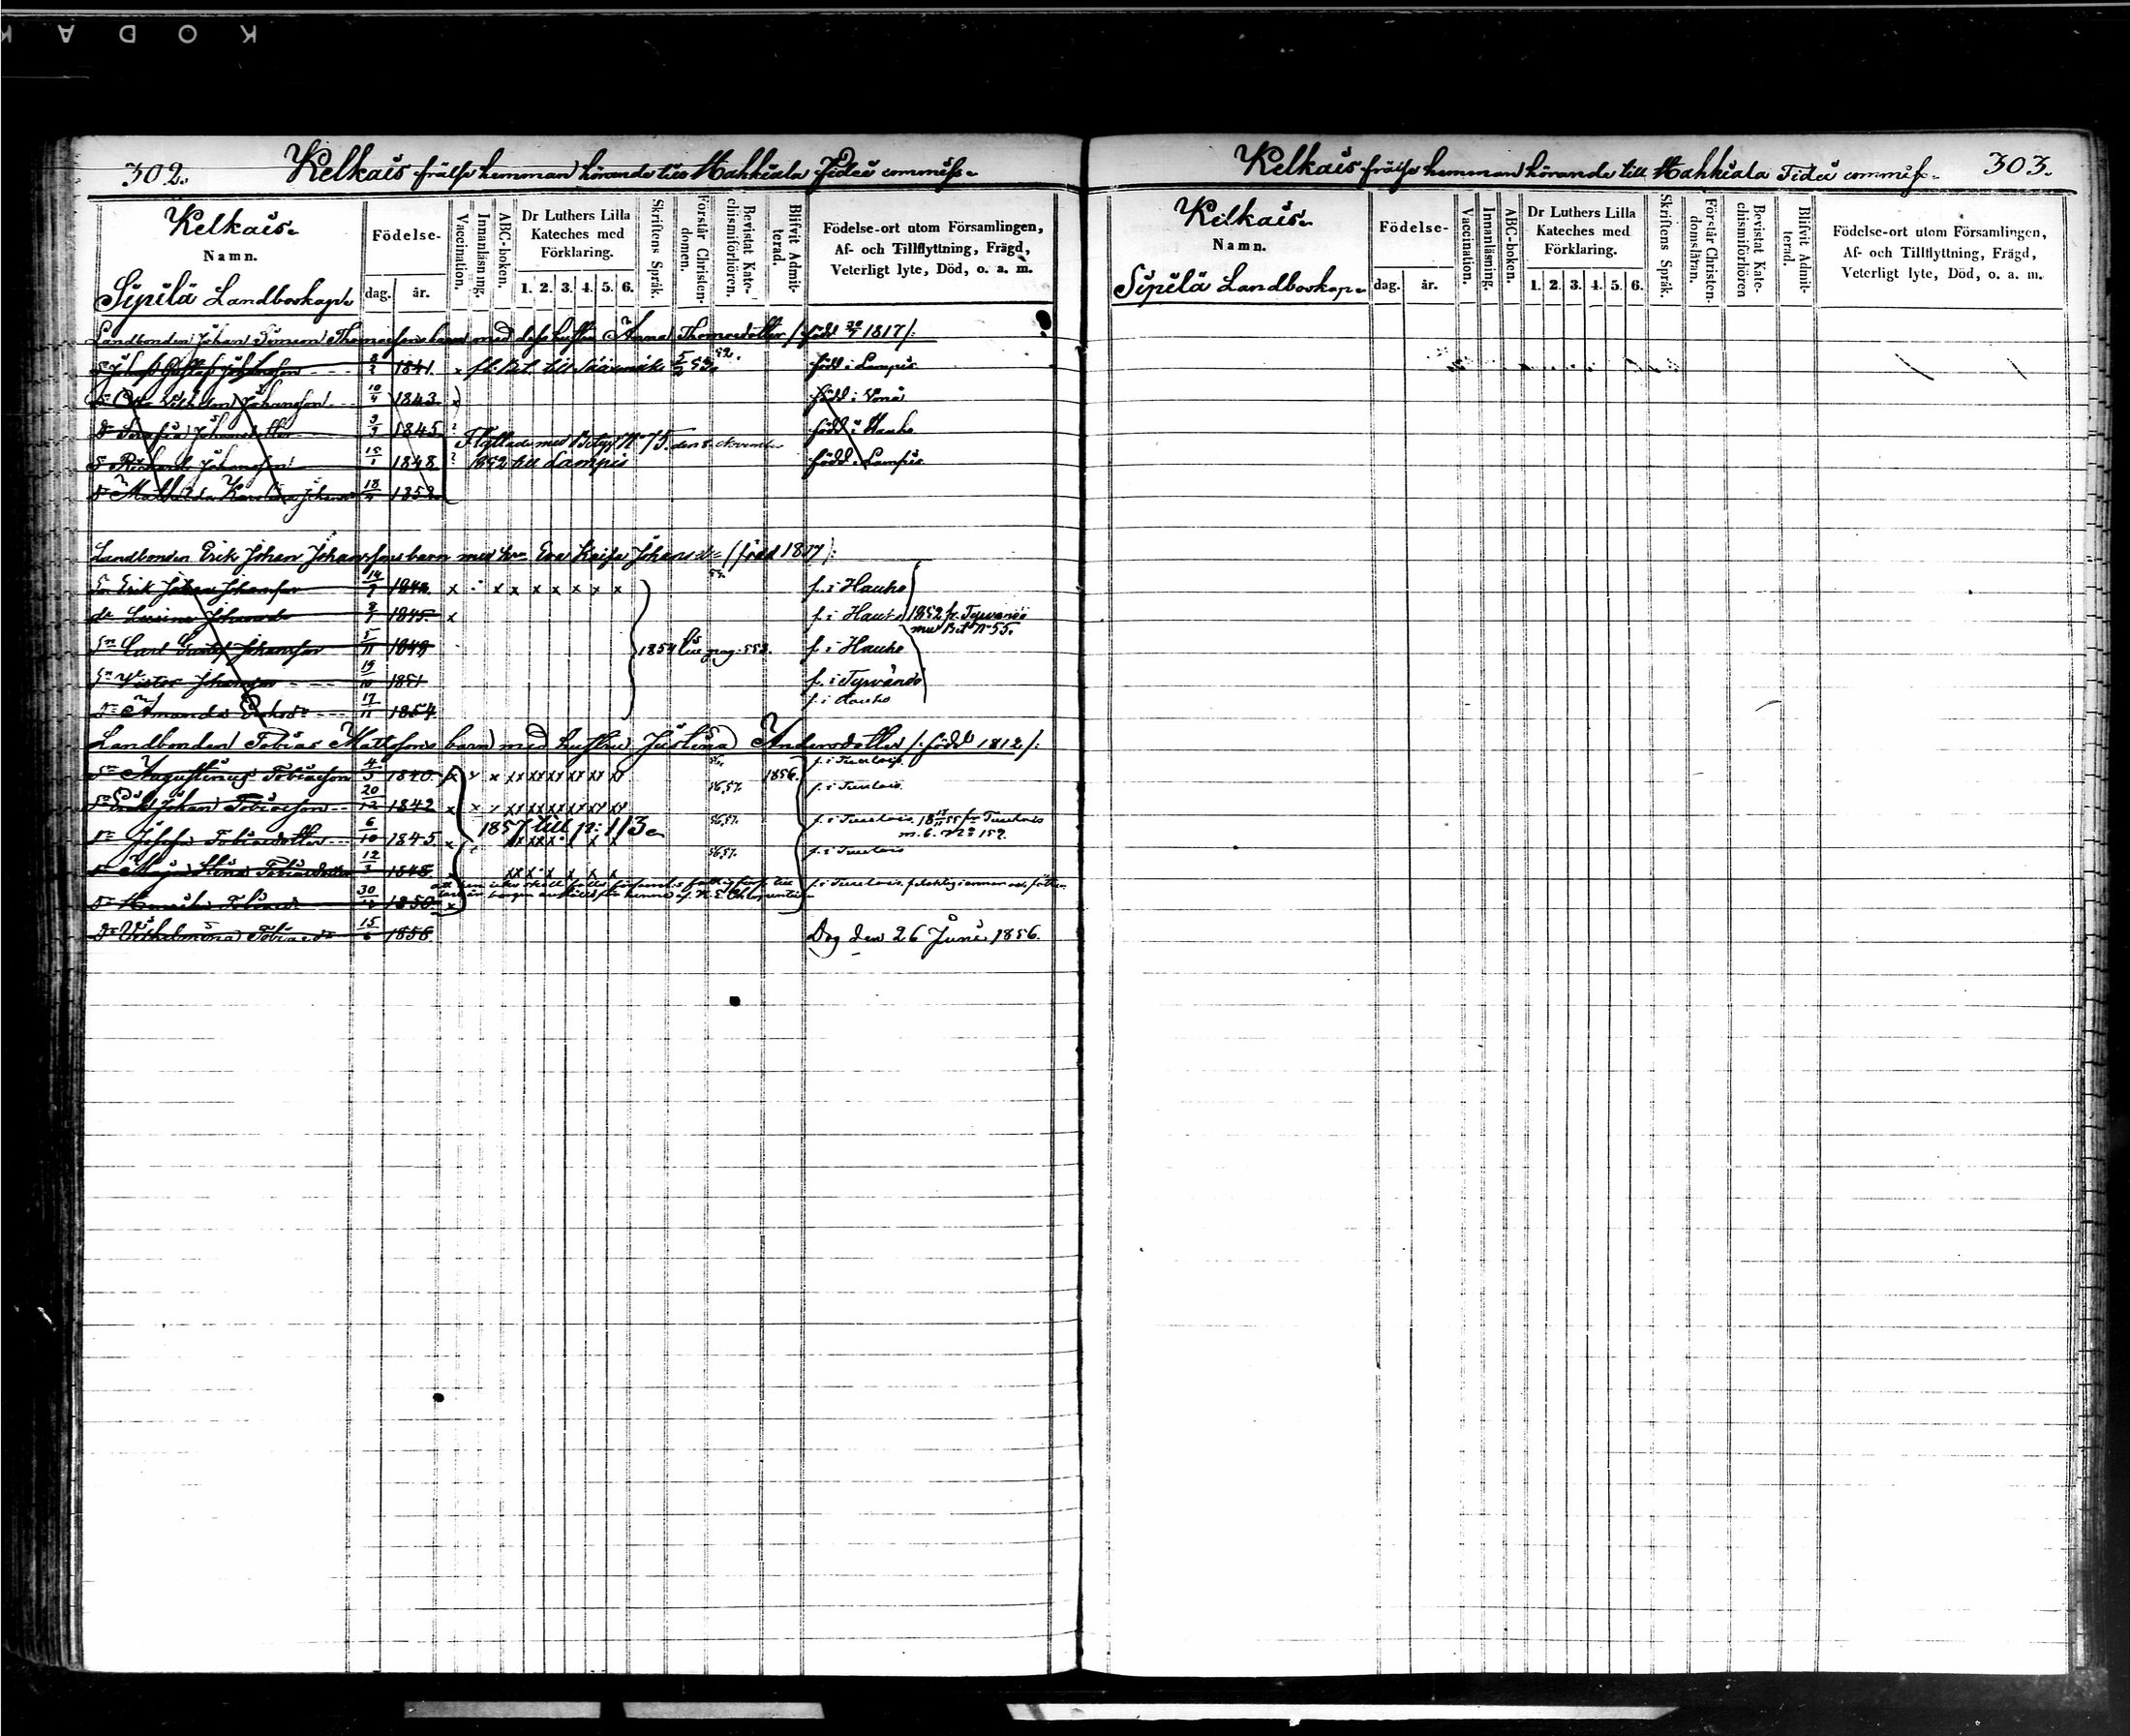 KODAK
302. Kelkais frälse hemman hörande till Hahkiala Fidei commiss.
Kelkais.
Namn.
Sipilä Landboskap.
Födelse-
dag. år.
Vaccination.
Innanläsning.
ABC-boken.
Dr Luthers Lilla
Kateches med
Förklaring.
1. 2. 3. 4. 5. 6.
Skriftens Språk.
Förstår Christen-
domen.
Bevistat Kate-
chismiförhören.
Blifvit Admit-
terad.
Födelse-ort utom Församlingen,
Af- och Tillflyttning, Frägd,
Veterligt lyte, Död, o. a. m.
Landbonden Johan Simeon Thomassons barn med dess hustru Anna Thomasdotter /: född 1817 /:
Johansson 2 1841. x till Sääxmäki född i Lampis
Sn Otto Wilhelm Johansson 10/4 1843. x född i
Dr Serafia Johansdotter 1845 född i Hauho
Flyttade med Betyg No 75. den 8 November
S Richard Johansson 15/1 1848 ? 1852 till Lampis född i Lampis
Dr Mathilda Karolina Johansd 18 1852
Landbonden Erik Johan Johanssons barn med hu Eva Kaisa Johansdr (född 1817):
Sn Erik Johan Johansson 14 x x x x x x x x f. i Hauho
dr Johansdr 1845 x f. i Hauho 1852 fr. Tyrvändö
med Bet No 55.
Sn Carl Gustaf Johansson 5/11 1849 1854 till pag. 558. f. i Hauho
Sn Victor Johansson 19/10 1851 f. i Tyrvändö
Dr Amanda Eriksdr 17/11 1854 f. i Hauho
Landbonden Tobias Mattssons barn med hustru Justina Andersdotter /: född 1812 /:
Sn Augustinus Tobiasson 4/5 1840 x x x xx xx xx xx xx xx 1856. f. i Tuulois
Sn Erik Johan Tobiasson 20/12 1842 x x x xx xx xx xx xx xx 56,57. f. i Tuulois
1857 till p: 113
Dr Josefa Tobiasdotter 6/10 1845 x 56,57. f. i Tuulois fr Tuulois
m. b. No 152.
Dr Maja Stina Tobiasdotter 12/3 1848 56,57. f. i Tuulois
Dr Henrika Tobiasdr 30 1850 x f. i Tuulois,
Dr Vilhelmina Tobiasdr 15/6 1856 Dog den 26 Juni 1856.
Kelkais frälse hemman hörande till Hahkiala Fidei commiss. 303.
Kelkais.
Namn.
Sipilä Landboskap.
Födelse-
dag. år.
Vaccination.
Innanläsning.
ABC-boken.
Dr Luthers Lilla
Kateches med
Förklaring.
1. 2. 3. 4. 5. 6.
Skriftens Språk.
Förstår Christen-
domsläran.
Bevistat Kate-
chismiförhören
Blifvit Admit-
terad.
Födelse-ort utom Församlingen,
Af- och Tillflyttning, Frägd,
Veterligt lyte, Död, o. a. m.